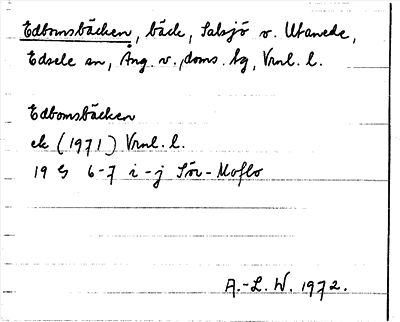 Edbomsbäcken, bäck, Salsjö v. Utanede,
Edsele sn, Ång. v. doms. tg, Vrnl. l.
Edbomsbäcken
ek (1971) Vrnl. l.
19 G 6-7 i-j Sör-Moflo
A.-L. W. 1972.